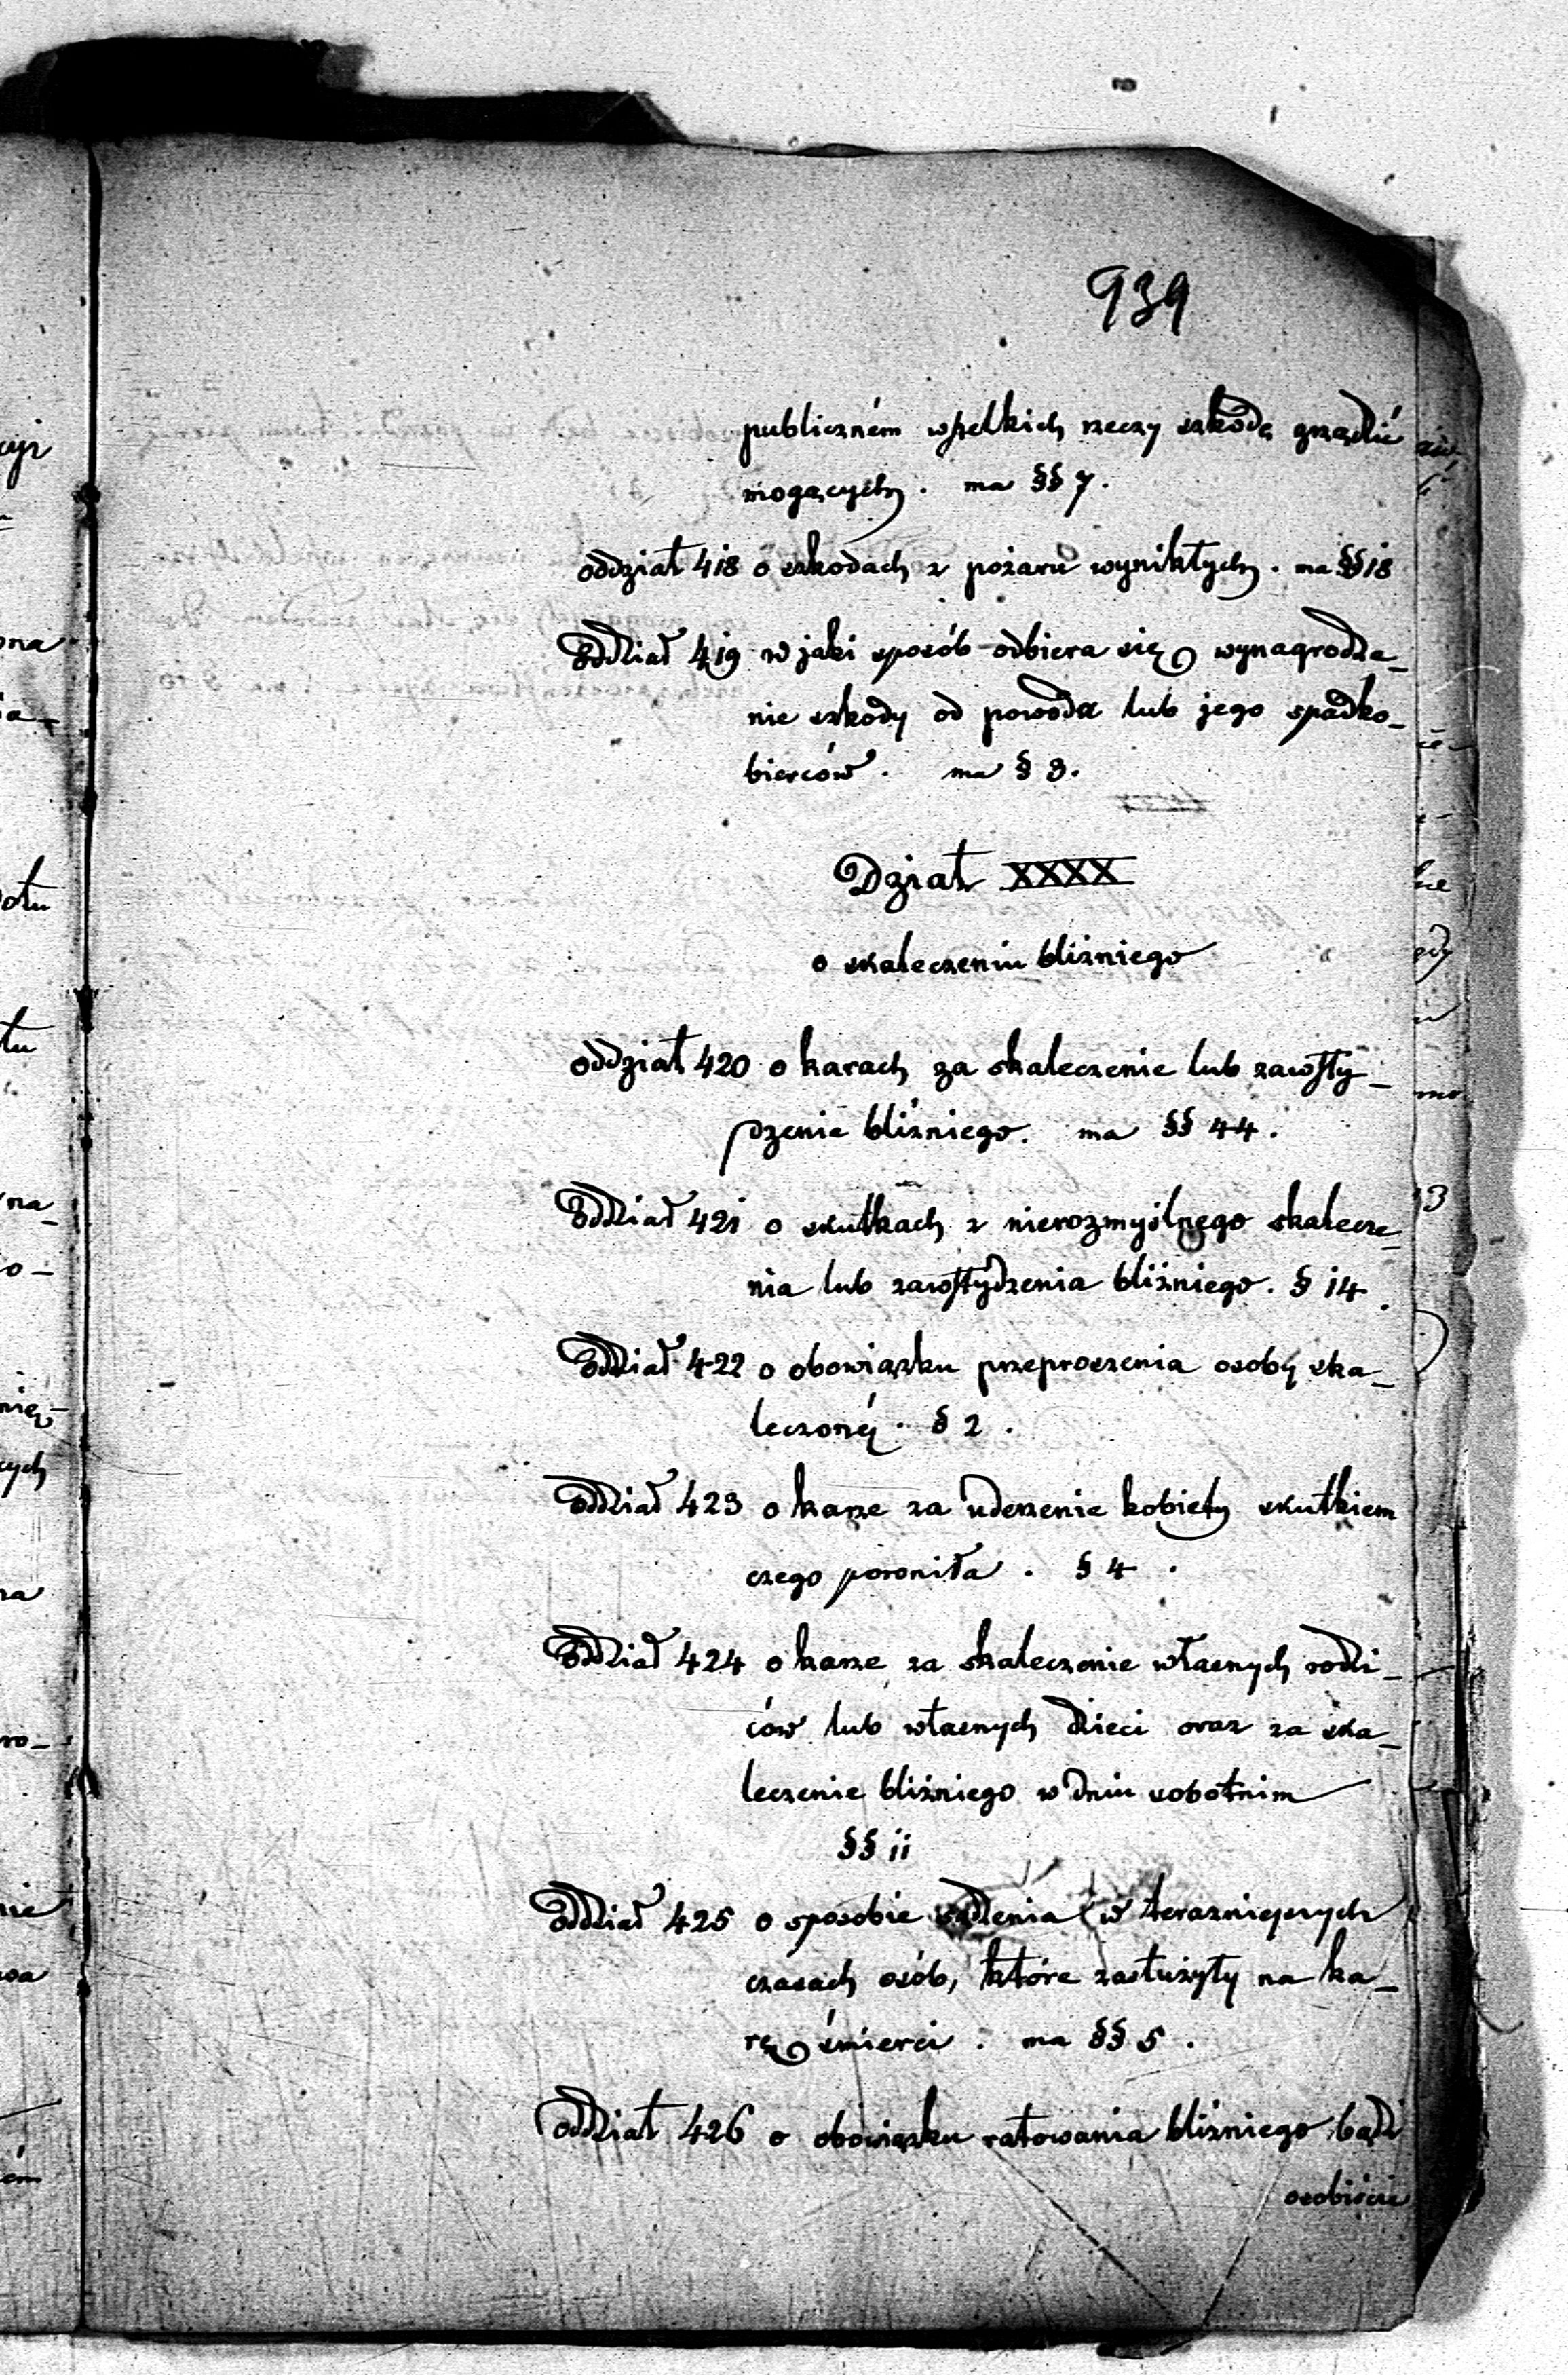 939
publiczném wszelkich rzeczy szkodę grządić
mogących. ma §§ 7.
oddział 418 o szkodach z pożaru wynikłych. ma §§ 18
Oddział 419 w jaki sposób odbiera się wynagrodze_
nie szkody od powoda lub jego spadko_
bierców. ma § 3.
Dział XXXX
o skaleczeniu bliźniego
oddział 420 o karach za skaleczenie lub zawsty_
dzenie bliźniego. ma §§ 44.
Oddział 421 o skutkach z nierozmyślnego skalecze_
nia lub zawstydzenia bliźniego. § 14.
Oddział 422 o obowiązku przeproszenia osoby ska_
leczonéj. § 2.
Oddział 423 o karze za uderzenie kobiety skutkiem
czego poroniła. § 4.
Oddział 424 o karze za skaleczenie własnych rodzi_
ców lub własnych dzieci oraz za ska_
leczenie bliźniego w dniu sobotnim
§§ 11
Oddział 425 o sposobie sądzenia w teraźniejszych
czasach osób, które zasłużyły na ka_
rę śmierci. ma §§ 5.
Oddział 426 o obowiązku ratowania bliźniego bądź
osobiście